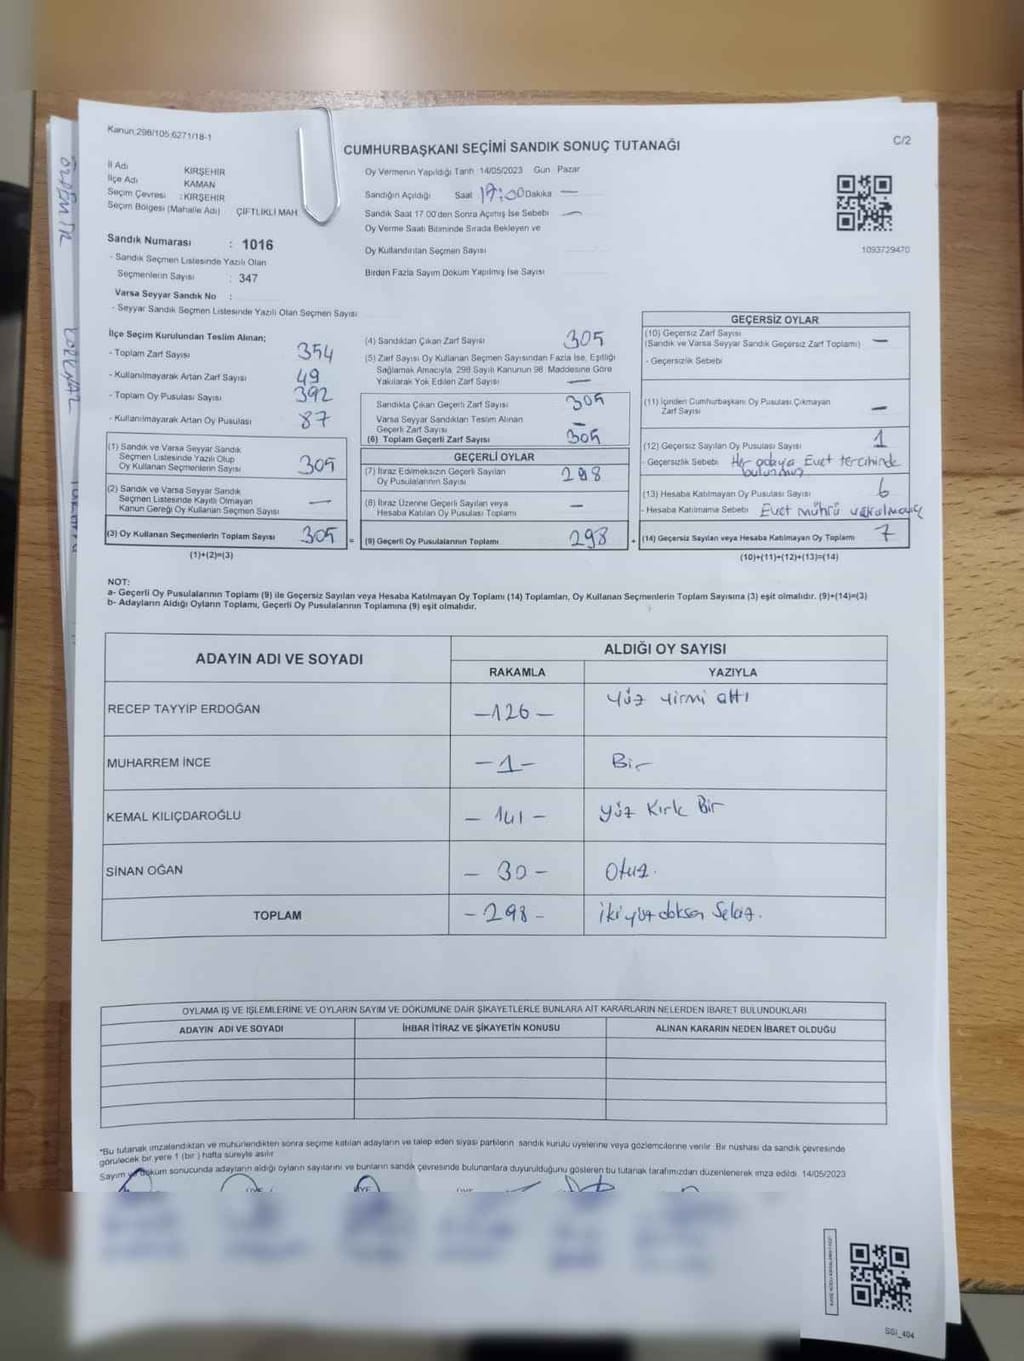 Kanun,298/105;6271/18-1
C/2
CUMHURBAŞKANI SEÇİMİ SANDIK SONUÇ TUTANAĞI
İl Adı KIRŞEHİR
İlçe Adı KAMAN
Seçim Çevresi : KIRŞEHİR
Seçim Bölgesi (Mahalle Adı) ÇİFTLİKLİ MAH
Sandık Numarası : 1016
- Sandık Seçmen Listesinde Yazılı Olan
Seçmenlerin Sayısı : 347
Varsa Seyyar Sandık No :
- Seyyar Sandık Seçmen Listesinde Yazılı Olan Seçmen Sayısı
Oy Vermenin Yapıldığı Tarih 14/05/2023 Gün Pazar
Sandığın Açıldığı Saat 17:00 Dakika —
Sandık Saat 17 00'den Sonra Açılmış İse Sebebi —
Oy Verme Saati Bitiminde Sırada Bekleyen ve
Oy Kullandırılan Seçmen Sayısı
Birden Fazla Sayım Döküm Yapılmış İse Sayısı
1093729470
İlçe Seçim Kurulundan Teslim Alınan;
- Toplam Zarf Sayısı 354
- Kullanılmayarak Artan Zarf Sayısı 49
- Toplam Oy Pusulası Sayısı 392
- Kullanılmayarak Artan Oy Pusulası 87
(1) Sandık ve Varsa Seyyar Sandık
Seçmen Listesinde Yazılı Olup
Oy Kullanan Seçmenlerin Sayısı 305
(2) Sandık ve Varsa Seyyar Sandık
Seçmen Listesinde Kayıtlı Olmayan
Kanun Gereği Oy Kullanan Seçmen Sayısı —
(3) Oy Kullanan Seçmenlerin Toplam Sayısı 305 =
(1)+(2)=(3)
(4) Sandıktan Çıkan Zarf Sayısı 305
(5) Zarf Sayısı Oy Kullanan Seçmen Sayısından Fazla İse, Eşitliği
Sağlamak Amacıyla, 298 Sayılı Kanunun 98. Maddesine Göre
Yakılarak Yok Edilen Zarf Sayısı —
Sandıkta Çıkan Geçerli Zarf Sayısı 305
Varsa Seyyar Sandıktan Teslim Alınan
Geçerli Zarf Sayısı —
(6) Toplam Geçerli Zarf Sayısı 305
GEÇERLİ OYLAR
(7) İtiraz Edilmeksizin Geçerli Sayılan
Oy Pusulalarının Sayısı 298
(8) İtiraz Üzerine Geçerli Sayılan veya
Hesaba Katılan Oy Pusulası Toplamı —
(9) Geçerli Oy Pusulalarının Toplamı 298 +
GEÇERSİZ OYLAR
(10) Geçersiz Zarf Sayısı
(Sandık ve Varsa Seyyar Sandık Geçersiz Zarf Toplamı) —
- Geçersizlik Sebebi
(11) İçinden Cumhurbaşkanı Oy Pusulası Çıkmayan
Zarf Sayısı —
(12) Geçersiz Sayılan Oy Pusulası Sayısı 1
- Geçersizlik Sebebi Her adaya Evet tercihinde
bulunmuş
(13) Hesaba Katılmayan Oy Pusulası Sayısı 6
- Hesaba Katılmama Sebebi Evet mührü
(14) Geçersiz Sayılan veya Hesaba Katılmayan Oy Toplamı 7
(10)+(11)+(12)+(13)=(14)
NOT:
a- Geçerli Oy Pusulalarının Toplamı (9) ile Geçersiz Sayılan veya Hesaba Katılmayan Oy Toplamı (14) Toplamları, Oy Kullanan Seçmenlerin Toplam Sayısına (3) eşit olmalıdır. (9)+(14)=(3)
b- Adayların Aldığı Oyların Toplamı, Geçerli Oy Pusulalarının Toplamına (9) eşit olmalıdır.
ADAYIN ADI VE SOYADI
ALDIĞI OY SAYISI
RAKAMLA YAZIYLA
RECEP TAYYİP ERDOĞAN —126— Yüz yirmi altı
MUHARREM İNCE —1— Bir
KEMAL KILIÇDAROĞLU — 141 — Yüz Kırk Bir
SİNAN OĞAN — 30 — Otuz.
TOPLAM —298— İkiyüz doksan Sekiz.
OYLAMA İŞ VE İŞLEMLERİNE VE OYLARIN SAYIM VE DÖKÜMÜNE DAİR ŞİKAYETLERLE BUNLARA AİT KARARLARIN NELERDEN İBARET BULUNDUKLARI
ADAYIN ADI VE SOYADI İHBAR İTİRAZ VE ŞİKAYETİN KONUSU ALINAN KARARIN NEDEN İBARET OLDUĞU
*Bu tutanak imzalandıktan ve mühürlendikten sonra seçime katılan adayların ve talep eden siyasi partilerin sandık kurulu üyelerine veya gözlemcilerine verilir. Bir nüshası da sandık çevresinde
görülecek bir yere 1 (bir ) hafta süreyle asılır
Sayım ve döküm sonucunda adayların aldığı oyların sayılarını ve bunların sandık çevresinde bulunanlara duyurulduğunu gösteren bu tutanak tarafımızdan düzenlenerek imza edildi. 14/05/2023
SSİ_404